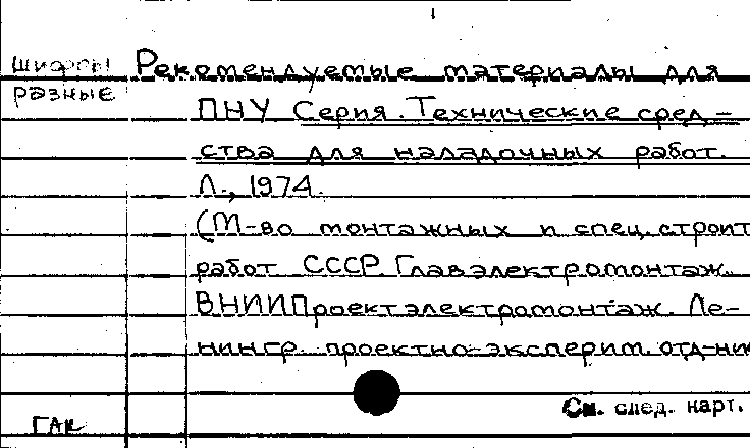 шифры
разные
Рекомендуемые материалы для
ПНУ Серия. Технические сред-
ства для наладочных работ.
Л., 1974.
(М-во монтажных и спец. строит
работ СССР. Главэлектромонтаж.
ВНИИПроектэлектромонтаж. Ле-
нингр. проектно-эксперим. отд-ни
См. след. карт.
ГАК